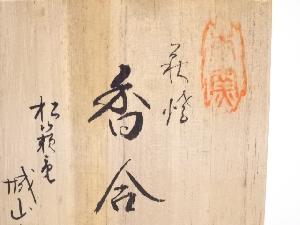 萩焼
香合
松籟庵
城山